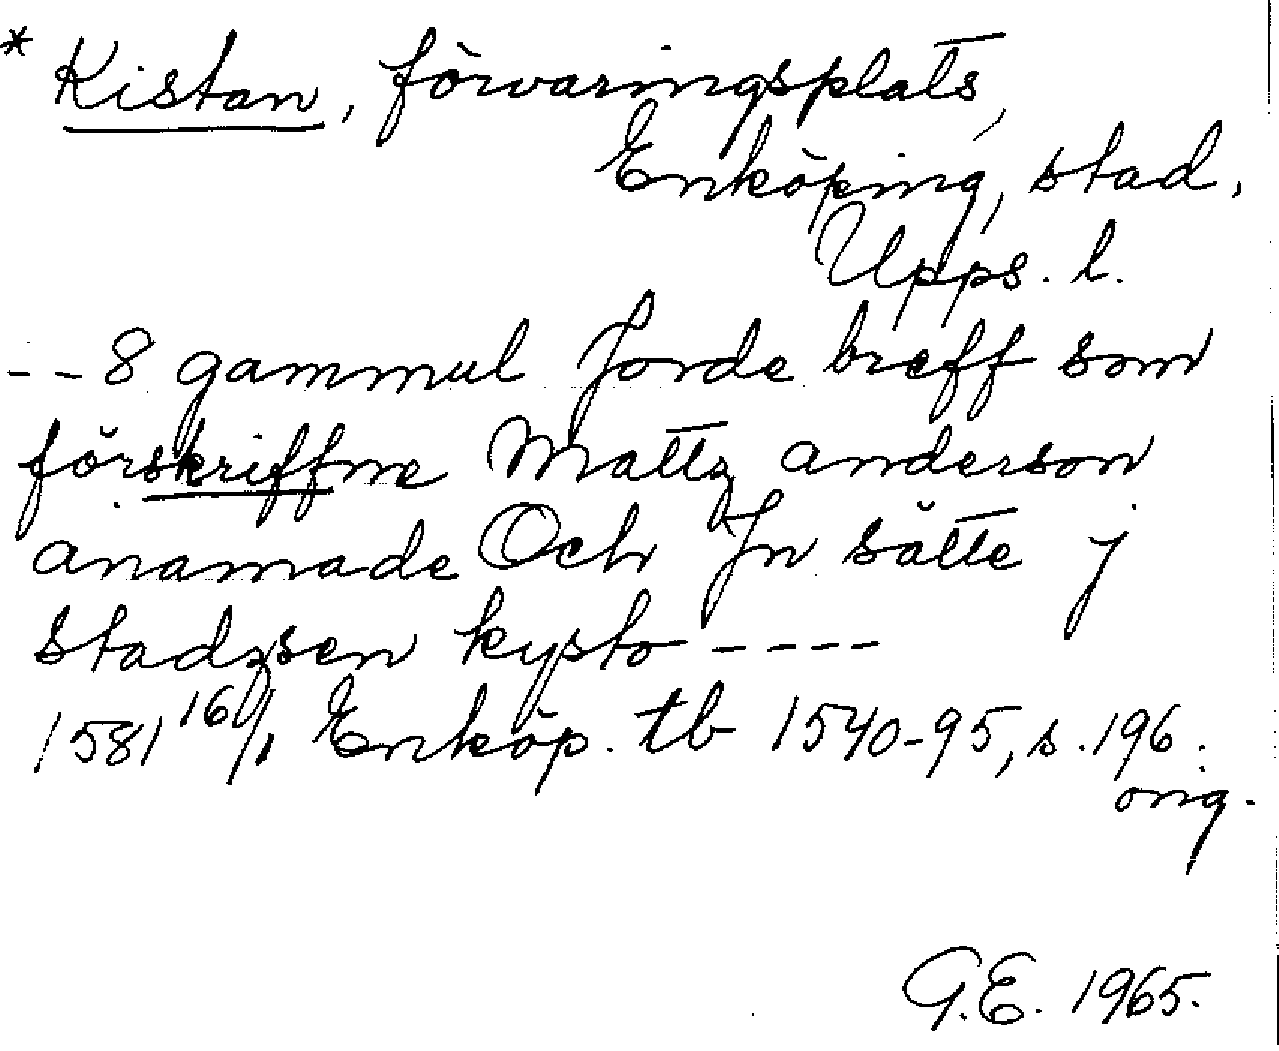 * Kistan, förvaringsplats,
Enköping, stad.
Upps. l.
-- 8 gammul Jorde breff som
förskriffne Mattz anderson
anamade Och Jn sätte j
stadzsen kysto ----
1581 16/1 Enköp. tb 1540-95, s. 196.
orig.
G.E. 1965.